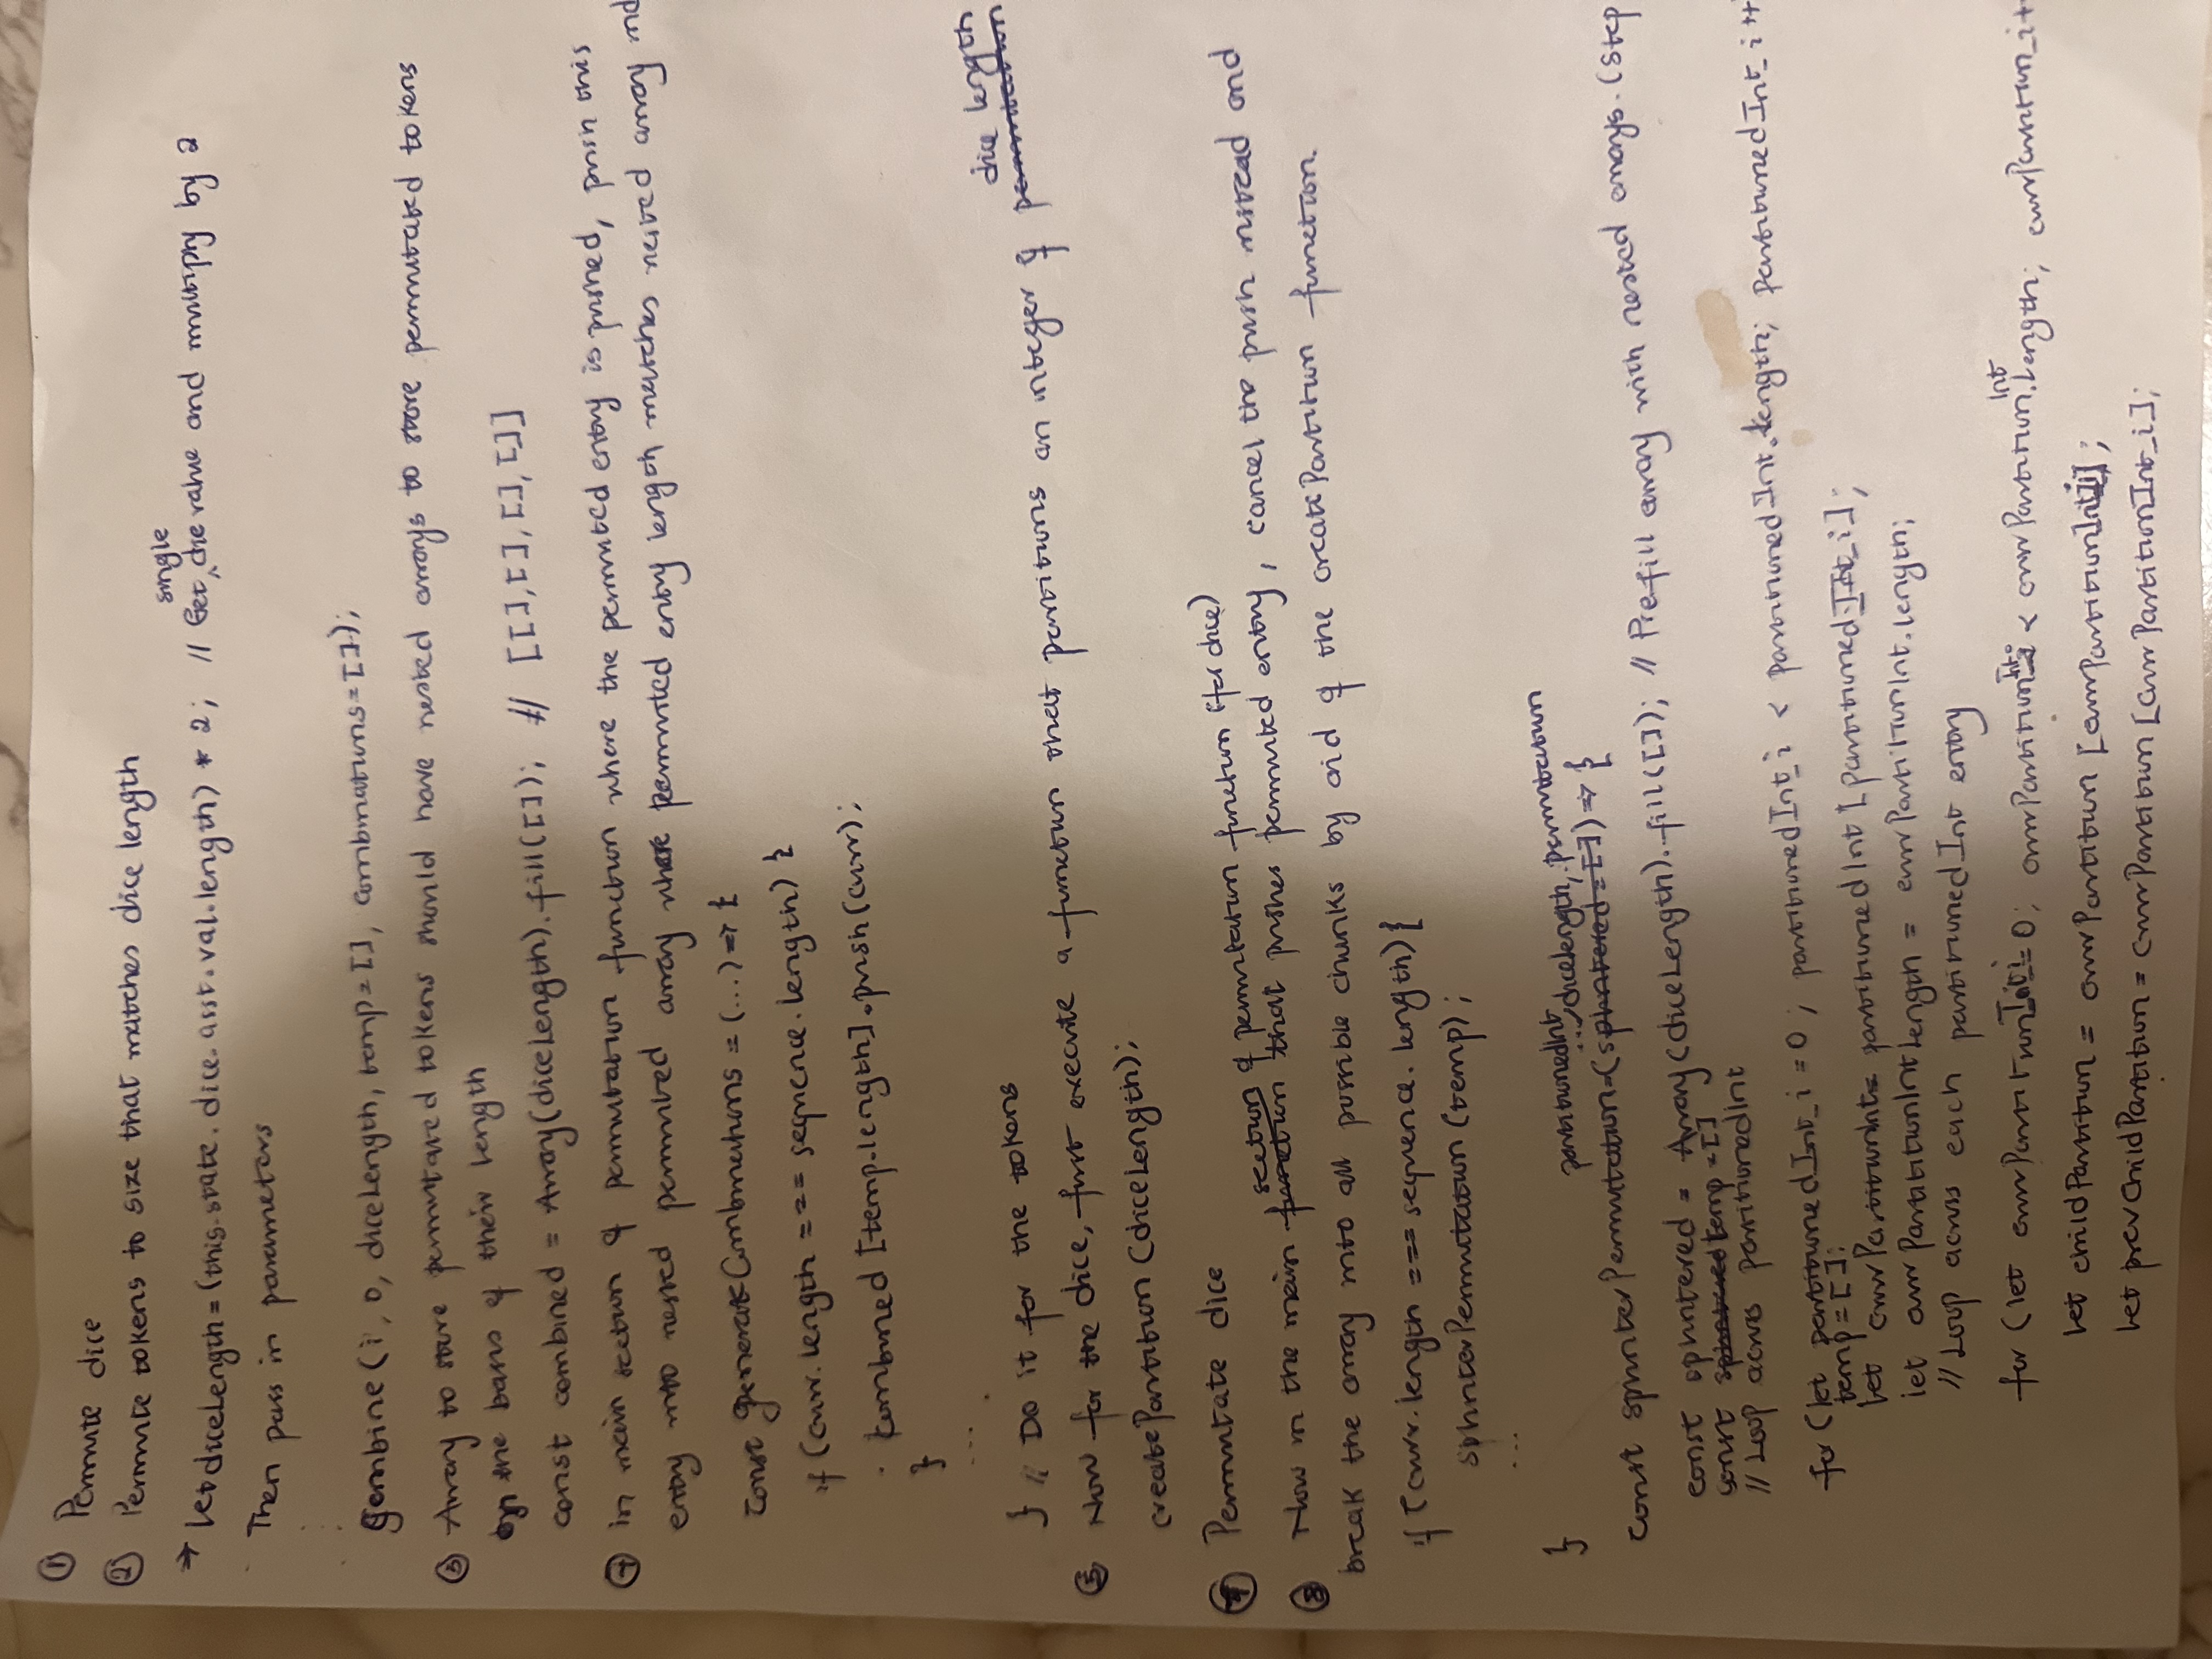 ① Permute dice
② Permute tokens to size that matches dice length
single
→ let diceLength = (this.state.dice.asst.val.length) * 2; // Get ^ die value and multiply by 2
Then pass in parameters
(i, 0, diceLength, temp=[], combinations=[]);
③ Array to store permutated tokens should have nested arrays to store permutated tokens
the basis of their length
const combined = Array(diceLength).fill([]); // [[],[],[],[]]
④ in main section of permutation function where the permuted entry is pushed, push this
entry into nested permuted array where permuted entry length matches nested array ind
const generateCombinations = (...) => {
if (curr.length === sequence.length) {
combined [temp.length].push(curr);
}
...
} // Do it for the tokens
dice length
⑤ Now for the dice, first execute a function that partitions an integer of permutation
createPartition (diceLength);
Permutate dice
section of permutation function (for dice)
⑧ Now in the main function that pushes permuted entry, cancel the push instead and
break the array into all possible chunks by aid of the createPartition function.
if (curr.length === sequence.length) {
splinterPermutation (temp);
...
}
partitionedInt, diceLength, permutation
const splinterPermutation = (splintered = []) => {
const splintered = Array(diceLength).fill([]); // Prefill array with nested arrays. (Step
const splintered temp = []
// Loop across partitionedInt
for (let partitionedInt_i = 0; partitionedInt_i < partitionedInt.length; partitionedInt_i++
temp = [];
let currPartitionInt = partitionedInt [partitionedInt_i];
let currPartititionIntLength = currPartitionInt.length;
// Loop across each partitionedInt entry
Int
for (let currPartitionInt_i = 0; currPartitionInt_i < currPartition.length; currPartition_i++
let childPartition = currPartition [currPartitionInt_i];
let prevChildPartition = currPartition [currPartitionInt_i];